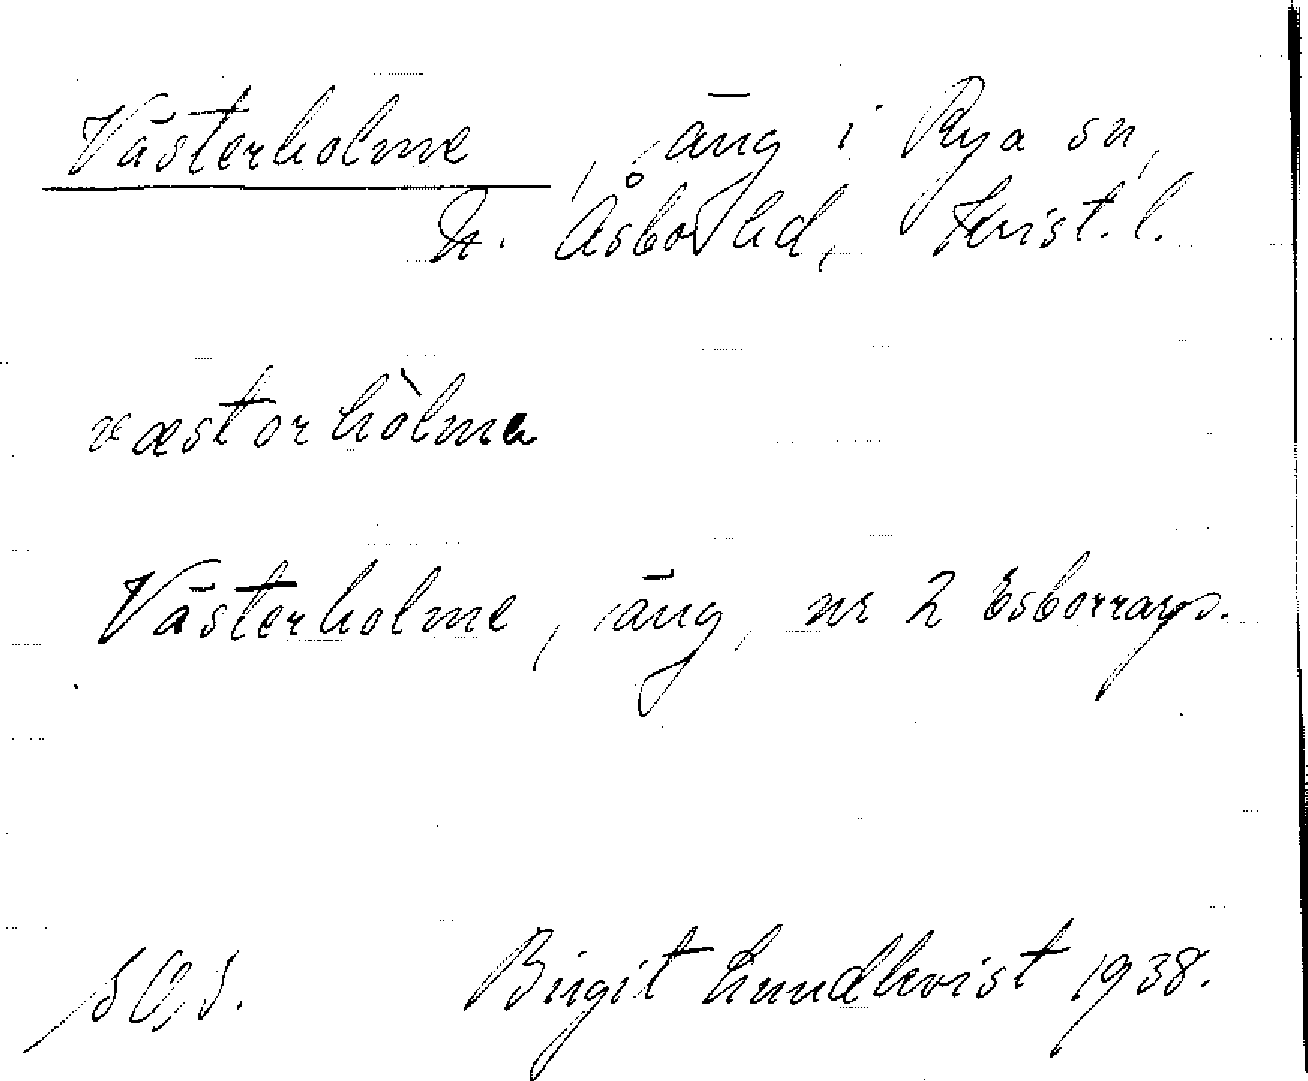 Västerholme, äng i Rya sn,
N. Åsbo hd, Krist. l.
væstərhòlmə
Västerholme, äng, nr 2 Esborrarps.
Birgit Lundkvist 1938.